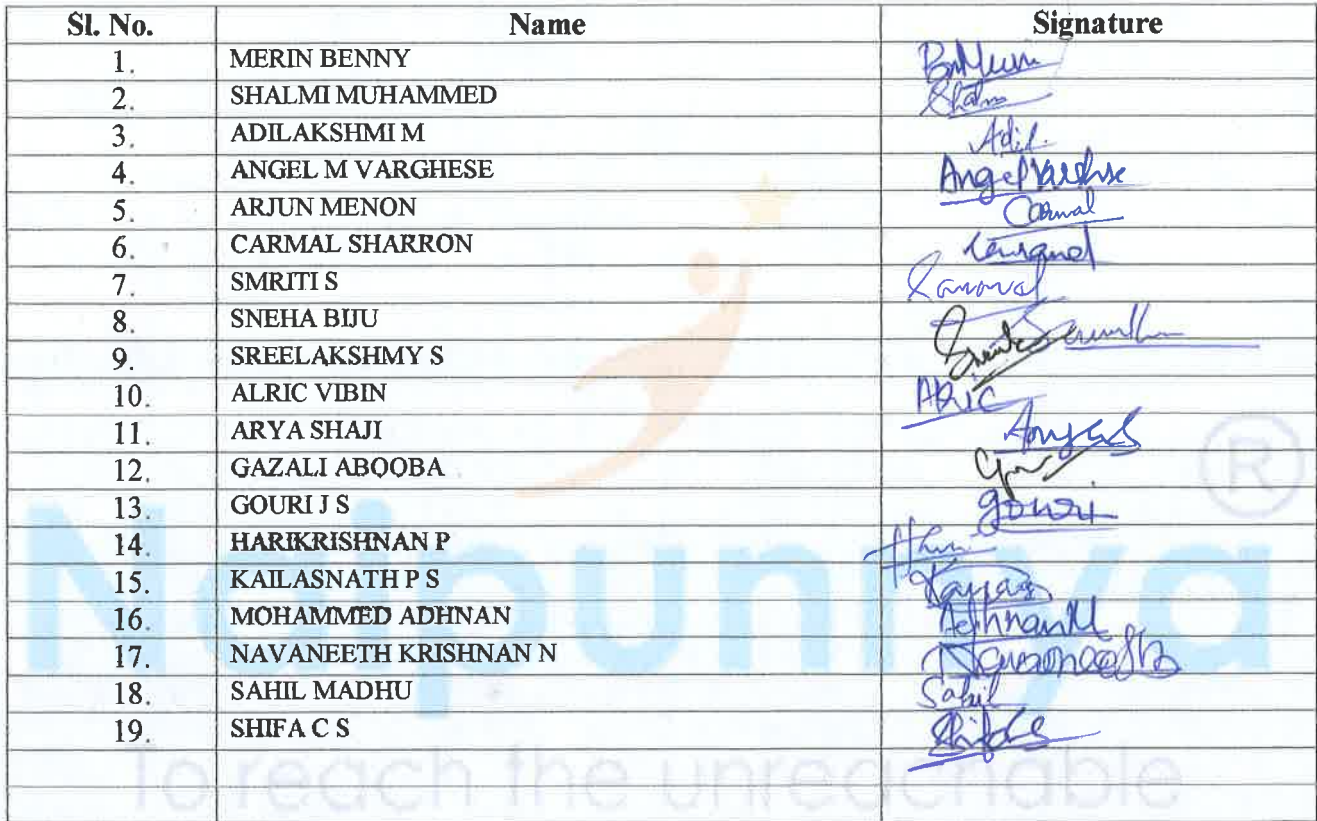 Sl. No. Name Signature
1. MERIN BENNY
2. SHALMI MUHAMMED
3. ADILAKSHMI M
4. ANGEL M VARGHESE Angel
5. ARJUN MENON Carmal
6. CARMAL SHARRON
7. SMRITI S
8. SNEHA BIJU
9. SREELAKSHMY S
10. ALRIC VIBIN Alric
11. ARYA SHAJI
12. GAZALI ABOOBA
13. GOURI J S gouri
14. HARIKRISHNAN P
15. KAILASNATH P S
16. MOHAMMED ADHNAN Adhnan M
17. NAVANEETH KRISHNAN N
18. SAHIL MADHU Sahil
19. SHIFA C S Shifa C S
Naipunnya ®
To reach the unreachable